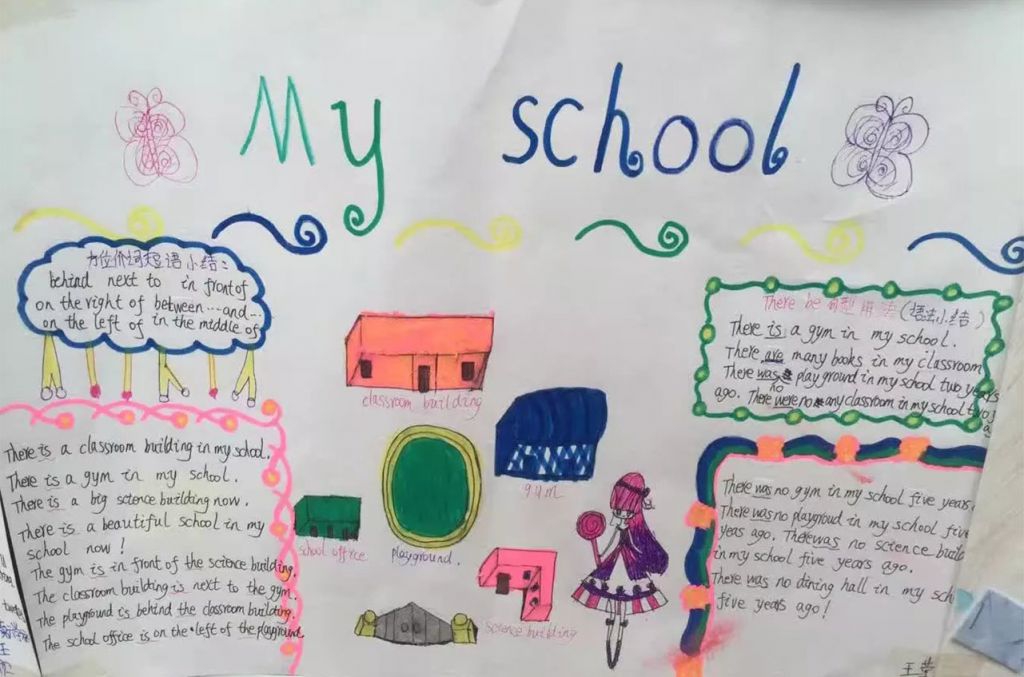 My school
方位介词短语小结:
behind next to in front of
on the right of between ... and ...
on the left of in the middle of
There be 句型用法 (语法小结)
There is a gym in my school.
There are many books in my classroom
There was no playground in my school two years
ago. There were no any classroom in my school two
There is a classroom building in my school.
There is a gym in my school.
There is a big science building now.
There is a beautiful school in my
school now!
The gym is in front of the science building.
The classroom building is next to the gym.
The playground is behind the classroom building.
The school office is on the left of the playground.
classroom building
gym
school office
playground.
science building
There was no gym in my school five years
There was no playgroud in my school five
years ago. There was no science build
in my school five years ago.
There was no dining hall in my sch
five years ago!